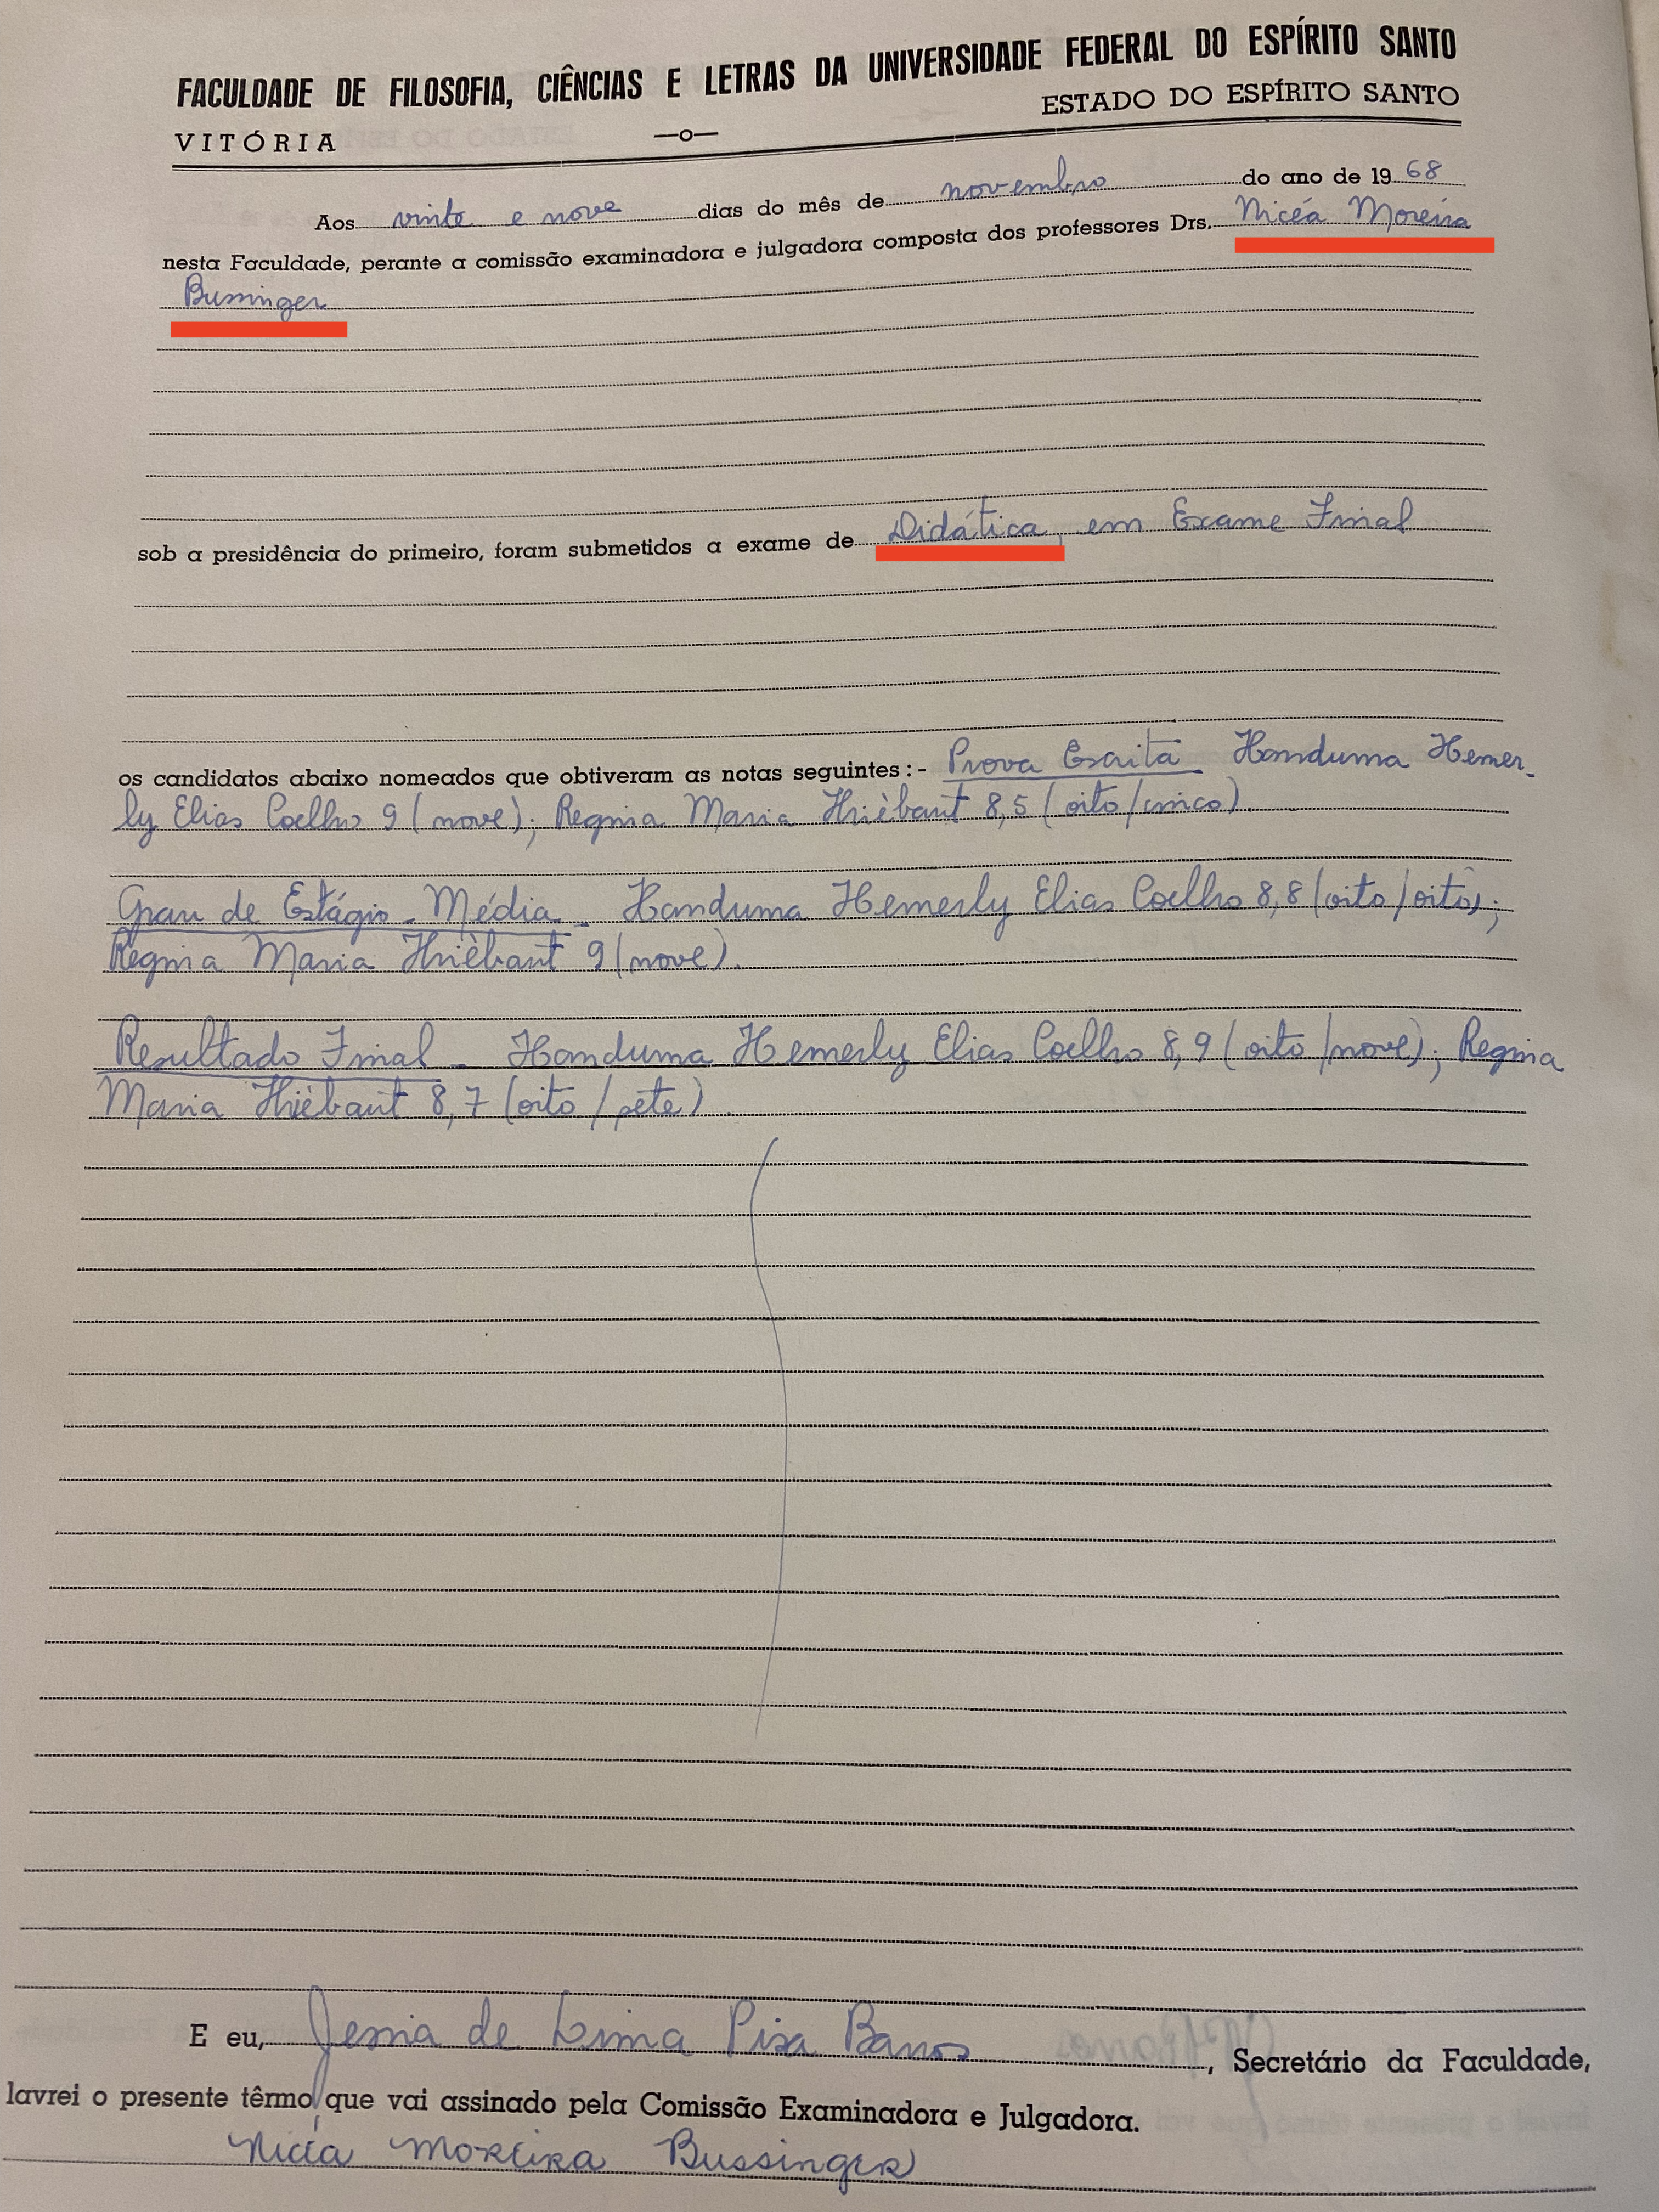 FACULDADE DE FILOSOFIA, CIÊNCIAS E LETRAS DA UNIVERSIDADE FEDERAL DO ESPÍRITO SANTO
VITÓRIA —o— ESTADO DO ESPÍRITO SANTO
Aos vinte e nove dias do mês de novembro do ano de 1968
nesta Faculdade, perante a comissão examinadora e julgadora composta dos professores Drs. Nicéa Moreira
Bussinger
sob a presidência do primeiro, foram submetidos a exame de Didática, em Exame Final
os candidatos abaixo nomeados que obtiveram as notas seguintes :- Prova Escrita Handuma Hemer-
ly Elias Coelho 9 (nove); Regina Maria Thièbaut 8,5 (oito/cinco).
Grau de Estágio - Média - Handuma Hemerly Elias Coelho 8,8 (oito/oito);
Regina Maria Thièbaut 9 (nove).
Resultado Final - Handuma Hemerly Elias Coelho 8,9 (oito/nove); Regina
Maria Thièbaut 8,7 (oito/sete).
E eu, de Lima Pisa, Secretário da Faculdade,
lavrei o presente têrmo que vai assinado pela Comissão Examinadora e Julgadora.
Nicéa Moreira Bussinger